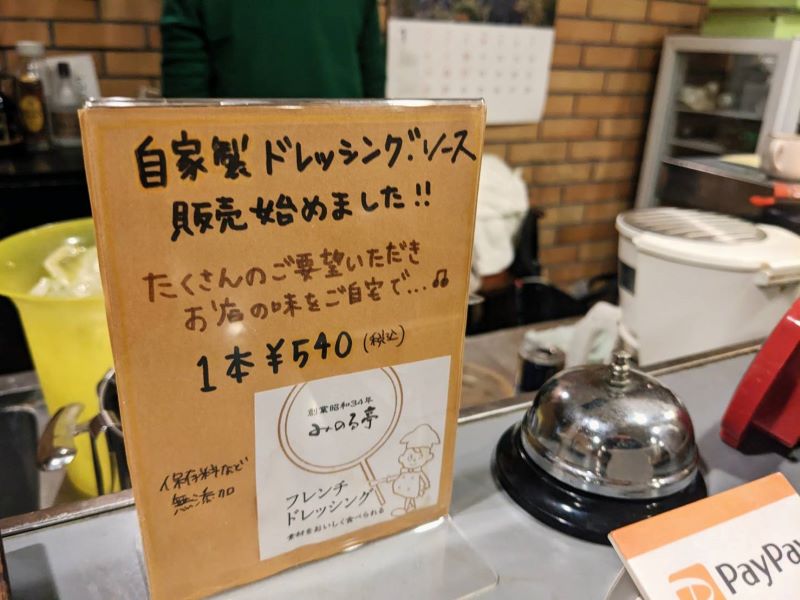 自家製 ドレッシング・ソース
販売始めました!!
たくさんのご要望いただき
お店の味をご自宅で...♫
1本¥540(税込)
創業昭和34年
みのる亭
保存料など
無添加
フレンチ
ドレッシング
素材をおいしく食べられる
PayPa